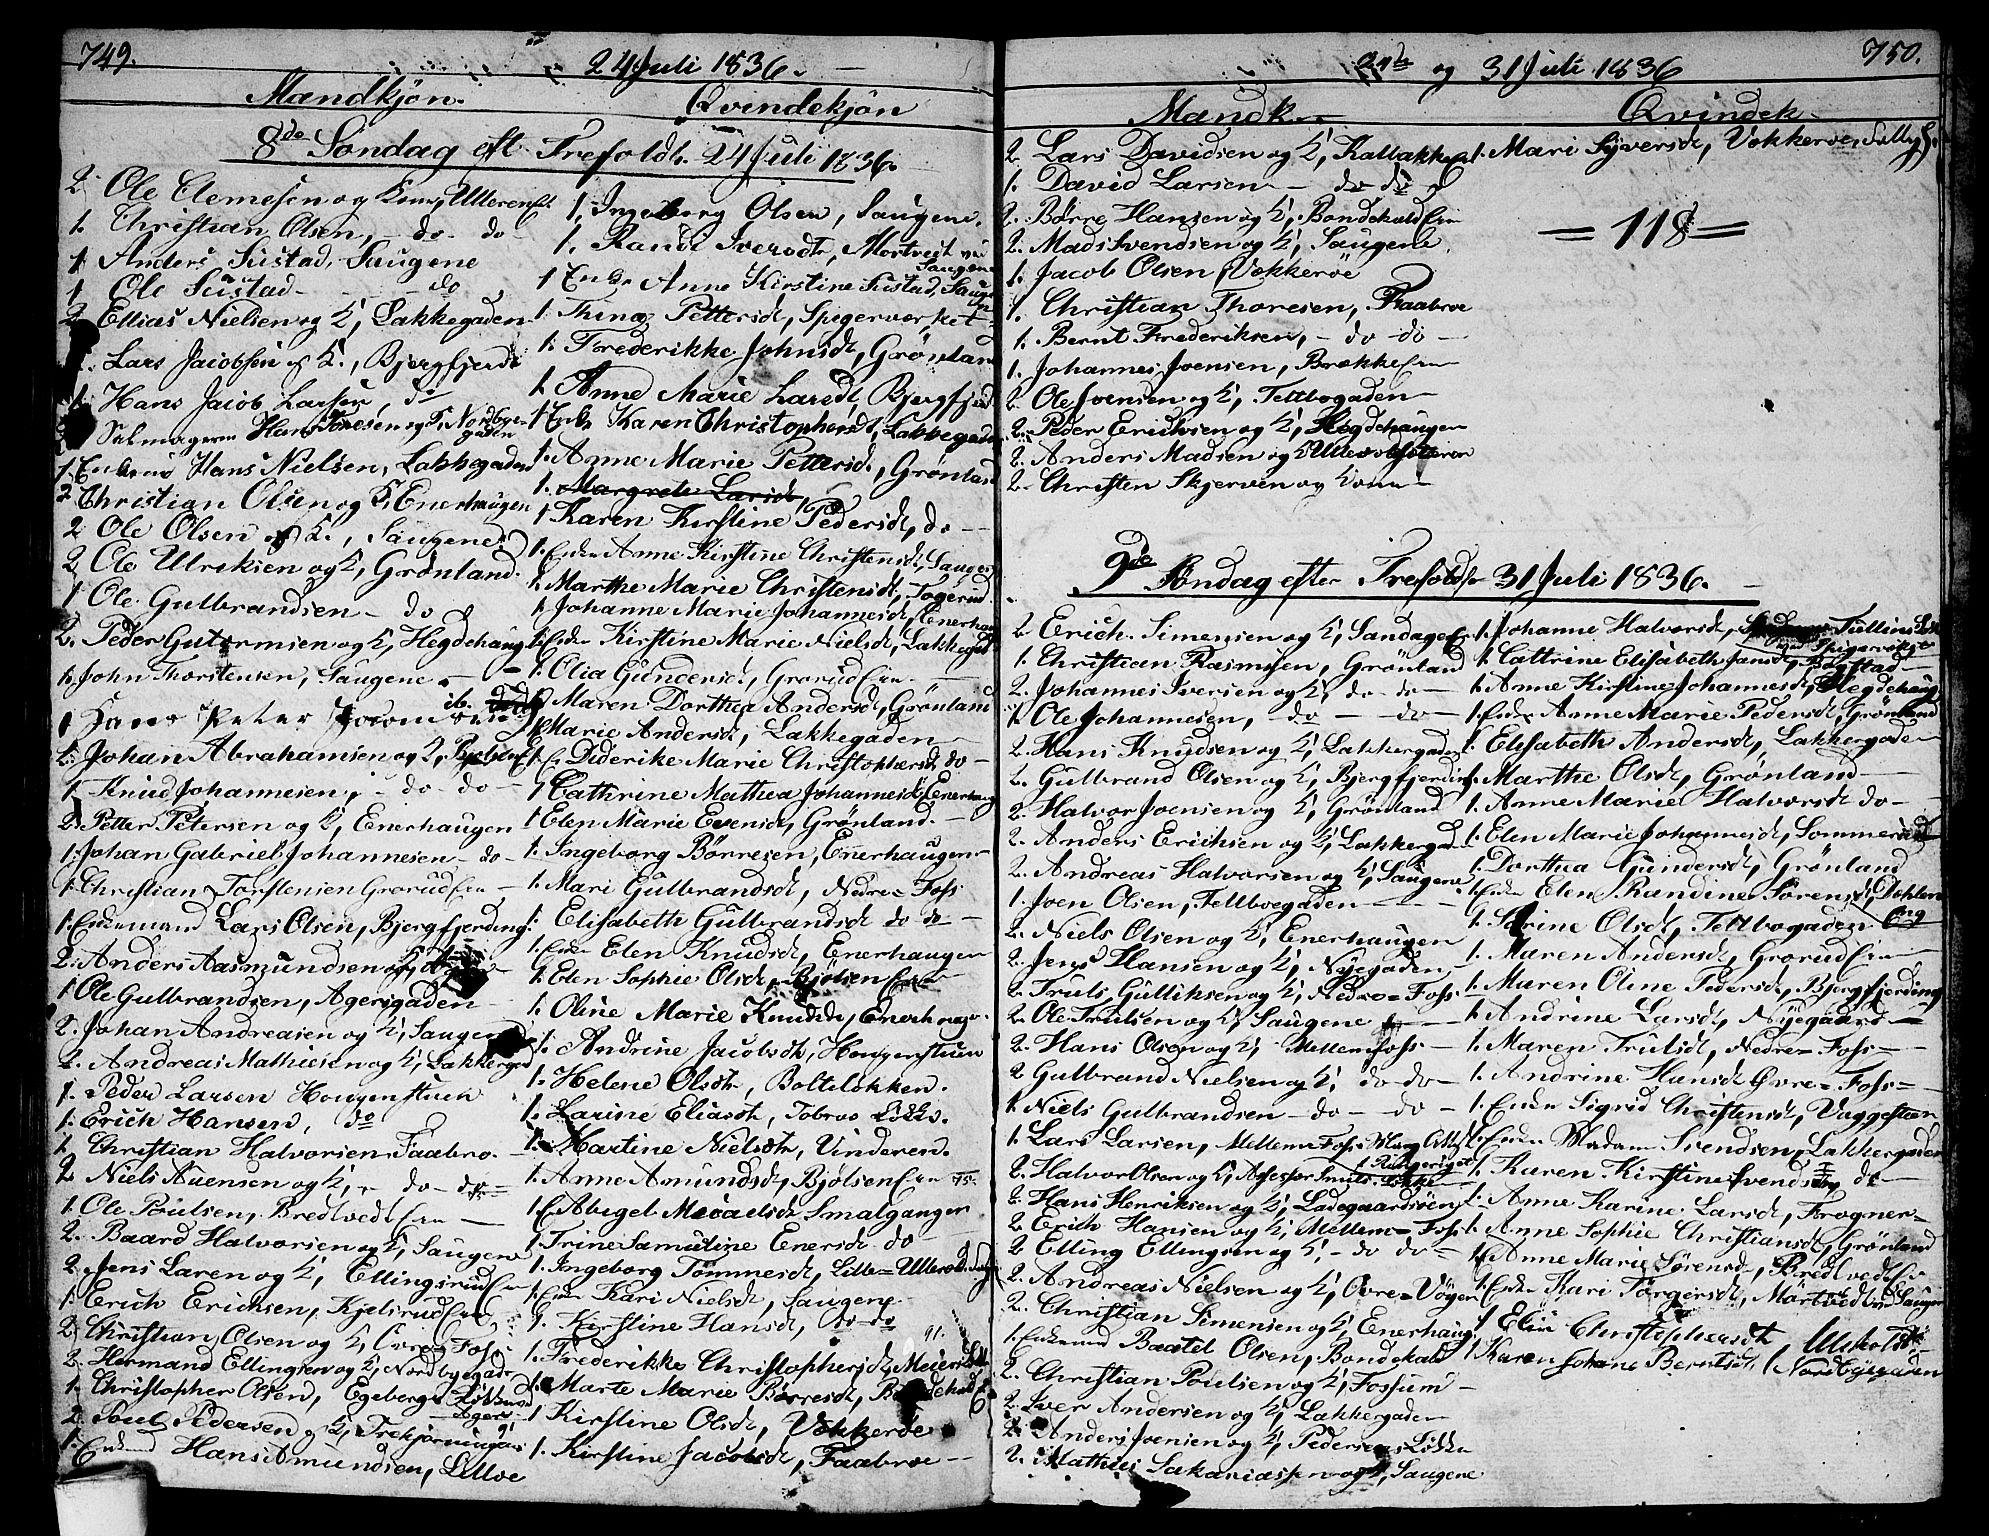 749.
24 Juli 1836.
Mandkjön. Qvindekjön
8de Söndag eft. Trefoldh. 24 Juli 1836.
2. Ole Clemesen og Kone, Ulleren E.
1. Christian Olsen, - do - do -
1. Anders Sustad, Saugene
1 Ole Sustad - - do
2 Ellias Nielsen og K, Lakkegaden
Lars Jacobsen og K., Bjergfjerd
1. Hans Jacob Larsen, do
Salmager Hans Toresen og K, Nordbye-
gaden
1. Enkem Hans Nielsen, Lakkegaden
2 Christian Olsen og K, Enerhaugen
2 Ole Olsen og K., Saugene
2 Ole Ulriksen og K, Grönland.
1 Ole Gulbrandsen - do
2. Peder Gutormsen og K, Hegdehaug
1. John Thorstensen, Saugene -
1 Hans Peter
2. Johan Abrahamsen og K,
1. Knud Johannesen, - do - do -
2. Petter Petersen og K, Enerhaugen
1. Johan Gabriel Johannesen - do -
1. Christian Torstensen Grorud Eie -
1. Enkemand Lars Olsen, Bjergfjerding.
2. Anders Aasmundsen og K,
1 Ole Gulbrandsen, Agersgaden -
2. Johan Andreasen og K, Saugene
2. Andreas Mathiesen og K, Lakkegad
1. Peder Larsen Hougenstuen
1. Erich Hansen, do
1. Christian Halvorsen Faabro. -
2 Niels Auensen og K, - do - do -
1. Ole Poulsen, Bredvedt Eie -
2. Baard Halvorsen og K, Saugene
2. Jens Laren og K, Ellingsrud Eie
1. Erich Erichsen, Kjelsrud Eie
2. Christian Olsen og K, Övre Foss
2. Hermand Ellingsen og K, Nordbyegade
1. Christopher Olsen, Egebergs Lökke
2. Poul Pedersen og K,
1. Enkemd Hans Amundsen, Lilloe
1. Ingeborg Olsen, Saugene.
1. Randi Iversdt, Mortvedt ved
Saugene
1 Enke Anne Kirstine Sustad, Saugen
1. Trine Pettersd, Spigerverket
1. Frederikke Johnsdt, Grönland
1. Anne Marie Larsdt, Bjergfjerd
1 Enke Karen Christophersdt, Lakkegaden
1. Anne Marie Pettersd., Grönland
1. Margrete Larsdt,
1 Karen Kirstine Pedersdt, do -
1. Enken Anne Kirstine Christensdt, Sauger
1. Marthe Marie Christensdt,
1. Johanne Marie Johannesdt, Enerhau
1. Enken Kirstine Marie Nielsdt, Lakkegad
1. Olia Gundersdt, Grorud Eie -
1. Maren Dorthea Andersdt, Grönland
Marie Andersdt, Lakkegaden -
1. E. Diderike Marie Christophersdt do -
1 Cathrine Mathea Johannesdt, Enerhaug
1 Elen Marie Evensdt, Grönland. -
1. Ingeborg Börresen, Enerhaugen -
1. Mari Gulbrandsdt, Nedre = Foss
1. Elisabeth Gulbrandsdt do do -
1. Enke Elen Knudsdt, Enerhaugen
1. Elen Sophie Olsdt, Bjölsen Eie -
1. Oline Marie Knudsdt, Enerhauge.
1. Andrine Jacobsdt, Hougenstuen
1. Helene Olsdtr, Bolteløkken.
1. Larine Eliasdt, Tobros Løkke.
1. Martine Nielsdtr, Vinderen.
1. Anne Amundsdt, Bjölsen Eie 75.
1 E. Abigel Micaelsdt Smalgangen
1. Trine Samuline Enersdt do -
1. Ingeborg Tommesdt, Lille = Ulleval
1. Enke Kari Nielsdt, Saugene -
1. Kirstine Hansdt, do do 91.
1. Frederikke Christophersdt, Meiers
1. Marte Marie Börresdt,
1. Kirstine Olsdt, Vækkeröe
1. Kirstine Jacobsdt, Faabroe --
750.
24de og 31 Juli 1836
Mandk - Qvindek -
2. Lars Davidsen og K, Kallakken
1. David Larsen - do do
2. Börre Hansen og K, Bondekald Eie
2. Mads Svendsen og K, Saugene
1. Jacob Olsen, Vækkeröe
1. Christian Thoresen, Faabroe
1. Bernt Frederiksen, - do - do -
1. Johannes Joensen, Brække Eie -
2. Ole Joensen og K, Teltbogaden -
2. Peder Erichsen og K, Hegdehaugen
2. Anders Madsen og K
2. Christen Skjerven og Kone -
1. Mari Syversdt, Vækkeröe,
= 118 =
9de Söndag efter Trefoldh. 31 Juli 1836.
2 Erich Simensen og K,
1. Christian Rasmusen, Grönland
2. Johannes Iversen og K, do - do -
1. Ole Johannesen, - do - do -
2. Hans Knudsen og K, Lakkegaden
2. Gulbrand Olsen og K, Bjergfjerding
2. Halvor Joensen og K, Grönland
2. Anders Erichsen og K, Lakkegade
2. Andreas Halvorsen og K, Saugene
1. Joen Olsen, Teltboegaden -
2. Niels Olsen og K, Enerhaugen
2. Jens Hansen og K, Nyegaden -
2. Truls Gulliksen og K, Nedre = Foss.
2. Ole Trulsen og K, Saugene -
2. Hans Olsen og K, Mellem Foss -
2 Gulbrand Nielsen og K, do - do -
1. Niels Gulbrandsen - do - do -
1. Lars Larsen, Mellem Foss
2. Halvor Olsen og K,
2. Hans Henriksen og K, Ladegaardsöen
2. Erich Hansen og K, Mellem = Foss
2 Elling Ellingsen og K, - do do -
2. Andreas Nielsen og K, Övre = Vöyen
2. Christian Simensen og K, Enerhaug
1. Enkemand Baatel Olsen, Bondekald
2. Christian Poulsen og K, Fossum -
2. Iver Andersen og K, Lakkegaden -
2. Anders Joensen og K, Pedersens Løkke
2. Mathias Sakariassen og K, Saugene
1. Johanne Halvorsdt, Tullins Løk
ved Spigervrket
1. Cattrine Elisabeth Jansdt, Bogstad -
1. Anne Kirstine Johannesdt, Hegdehaug
1. Enke Anne Marie Pedersdt, Grönland
1. Elisabeth Andersdt, Lakkegaden
1. Marthe Olsdt, Grönland -
1. Anne Marie Halvorsdt do -
1. Elen Marie Johannesdt, Sommerud
1. Dorthea Gundersdt, Grönland
1. Enke Elen Randine Sörensdt, Dehlens
Eng
1. Karine Olsdt, Teltbogaden
1. Maren Andersdt, Grorud Eie -
1. Maren Oline Pedersdt, Bjergfjerding
1. Andrine Larsdt, Nyegaden -
1. Maren Trulsdt, Nedre = Foss -
1. Andrine Hansdt Övre = Foss -
1. Enke Sigrid Christensdt, Vaggestuen
1. Enke Madam Svendsen, Lakkegaden
1. Karen Kirstine Svendsdt, do -
1. Anne Karine Larsdt, Frogner -
1. Anne Sophie Christiansdt, Grönland
1. Anne Marie Sörensdt, Bredvedt Eie
1. Enke Kari Torgersdt, Mortvedt ved Saugen
1 Elin Christophersdt
1 Karen Johane Berntsdt. Nordbyegaden